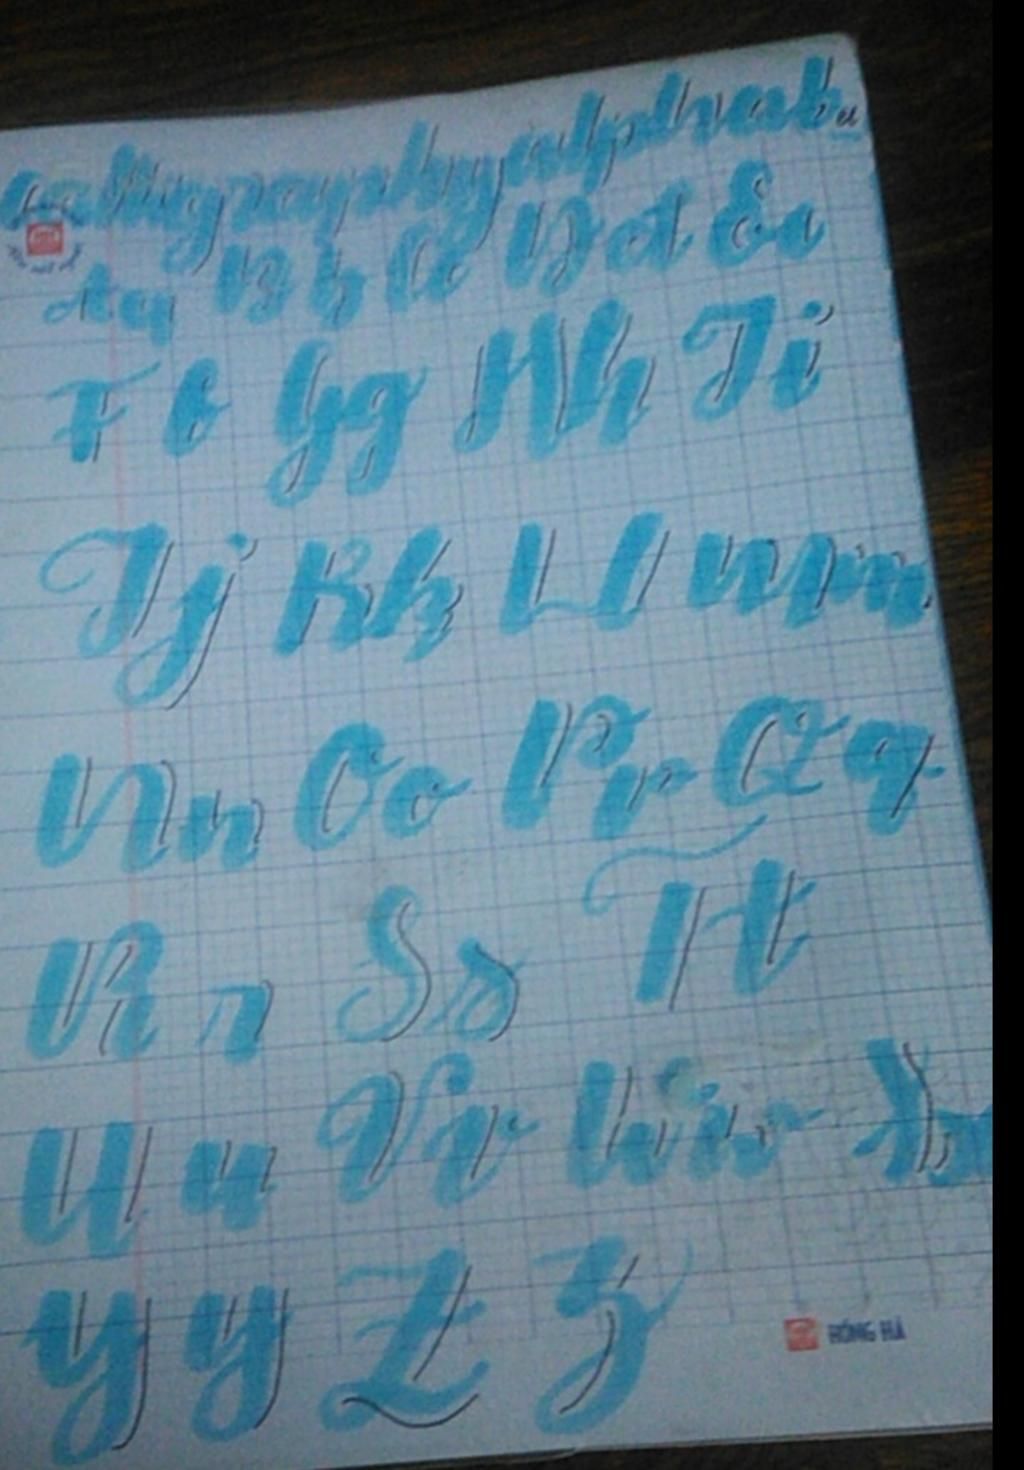 Calligraphy alphabet
Aa Bb Cc Dd Ee
Ff Gg Hh Ii
Jj Kk Ll Mm
Nn Oo Pp Qq
Rr Ss Tt
Uu Vv Ww Xx
Yy Zz
HỒNG HÀ